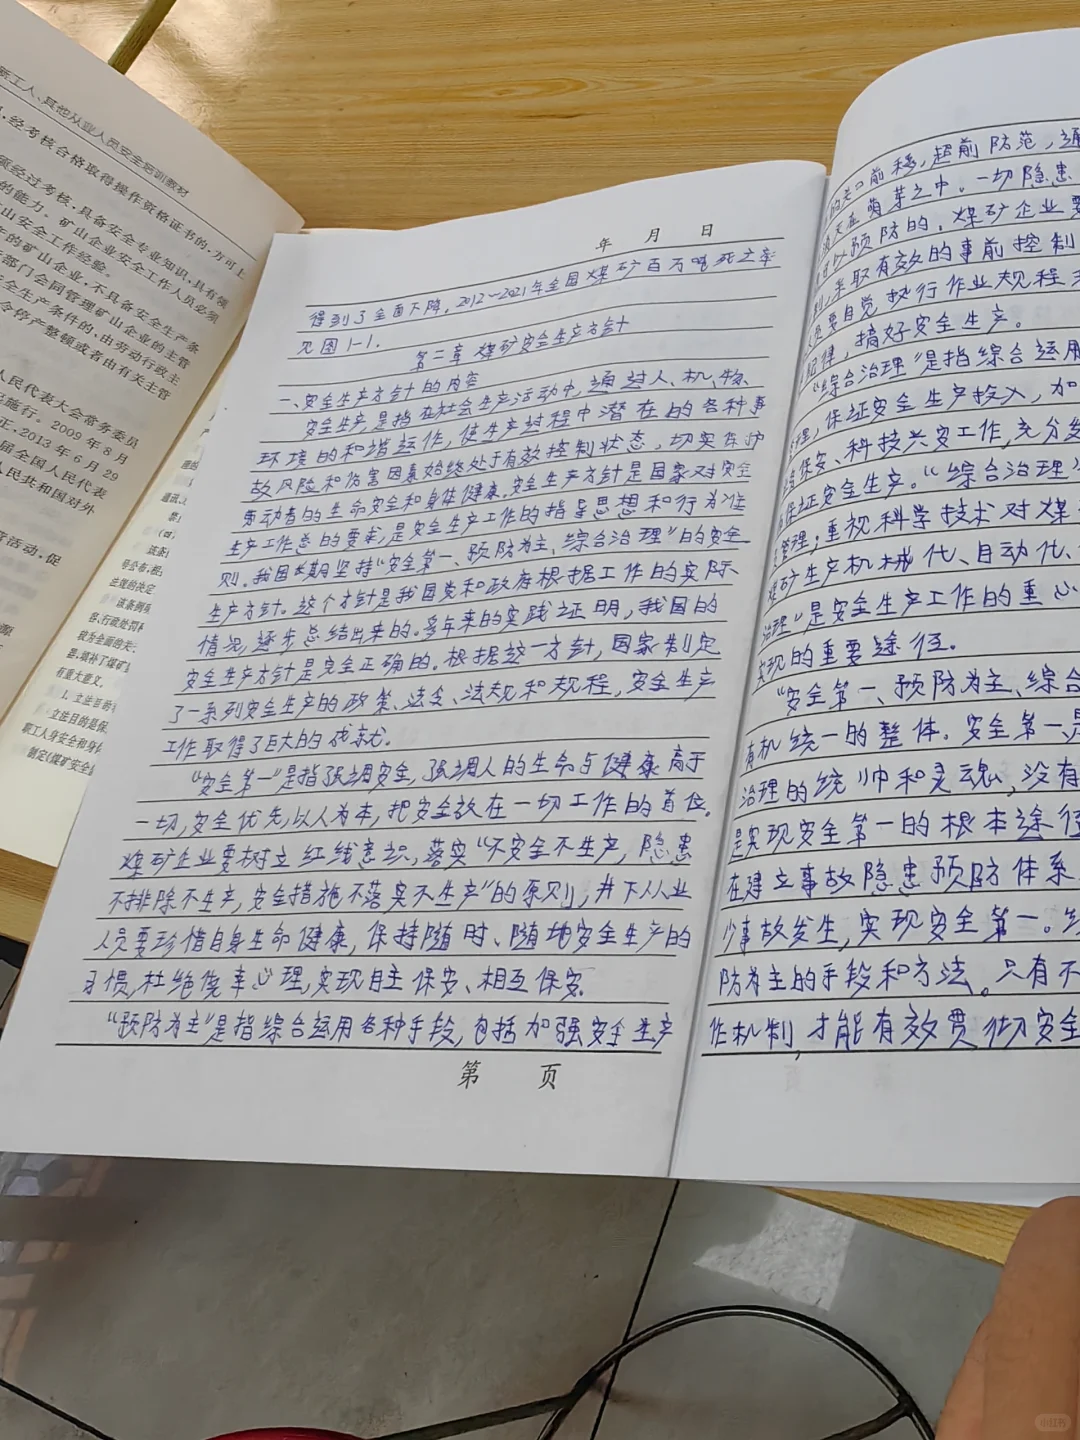 新工人、其他从业人员安全培训教材
经考核合格取得操作资格证书的,方可上
须经过考核,具备安全专业知识,具有领
的能力。矿山企业安全工作人员必须
矿山安全工作经验。
的矿山企业,不具备安全生产条
部门会同管理矿山企业的主管
安全生产条件的,由劳动行政主
令停产整顿或者由有关主管
人民代表大会常务委员
施行。2009年8月
正,2013年6月29
届全国人民代表
人民共和国对外
活动,促
号公布,
法理的决定
该条例
容、行政处罚
我为全面的关
题,填补了煤矿
有重大意义。
1. 立法目的
立法目的是保
职工人身安全和身
制定《煤矿安全
年 月 日
得到了全面下降。2012~2021年全国煤矿百万吨死亡率
见图1-1.
第二章 煤矿安全生产方针
一、安全生产方针的内容
安全生产,是指在社会生产活动中,通过人、机、物、
环境的和谐运作,使生产过程中潜在的各种事
故风险和伤害因素始终处于有效控制状态,切实保护
劳动者的生命安全和身体健康。安全生产方针是国家对安全
生产工作总的要求,是安全生产工作的指导思想和行为准
则。我国长期坚持“安全第一、预防为主、综合治理”的安全
生产方针。这个方针是我国党和政府根据工作的实际
情况,逐步总结出来的。多年来的实践证明,我国的
安全生产方针是完全正确的。根据这一方针,国家制定
了一系列安全生产的政策、法令、法规和规程,安全生产
工作取得了巨大的成就。
“安全第一”是指强调安全,强调人的生命与健康高于
一切,安全优先,以人为本,把安全放在一切工作的首位。
煤矿企业要树立红线意识,落实“不安全不生产,隐患
不排除不生产,安全措施不落实不生产”的原则,井下从业
人员要珍惜自身生命健康,保持随时、随地安全生产的
习惯,杜绝侥幸心理,实现自主保安、相互保安。
“预防为主”是指综合运用各种手段,包括加强安全生产
第 页
的关口前移,超前防范,通
消灭在萌芽之中。一切隐患
可以预防的,煤矿企业要
采取有效的事前控制
员要自觉执行作业规程
纪律,搞好安全生产。
“综合治理”是指综合运用
管理,保证安全生产投入,加
保安、科技兴安工作,充分发
保证安全生产。“综合治理
管理;重视科学技术对煤
煤矿生产机械化、自动化、
治理”是安全生产工作的重心
实现的重要途径。
“安全第一、预防为主、综合
有机统一的整体。安全第一是
治理的统帅和灵魂,没有
是实现安全第一的根本途径
在建立事故隐患预防体系
少事故发生,实现安全第一。综
防为主的手段和方法。只有不
作机制,才能有效贯彻安全
小红书